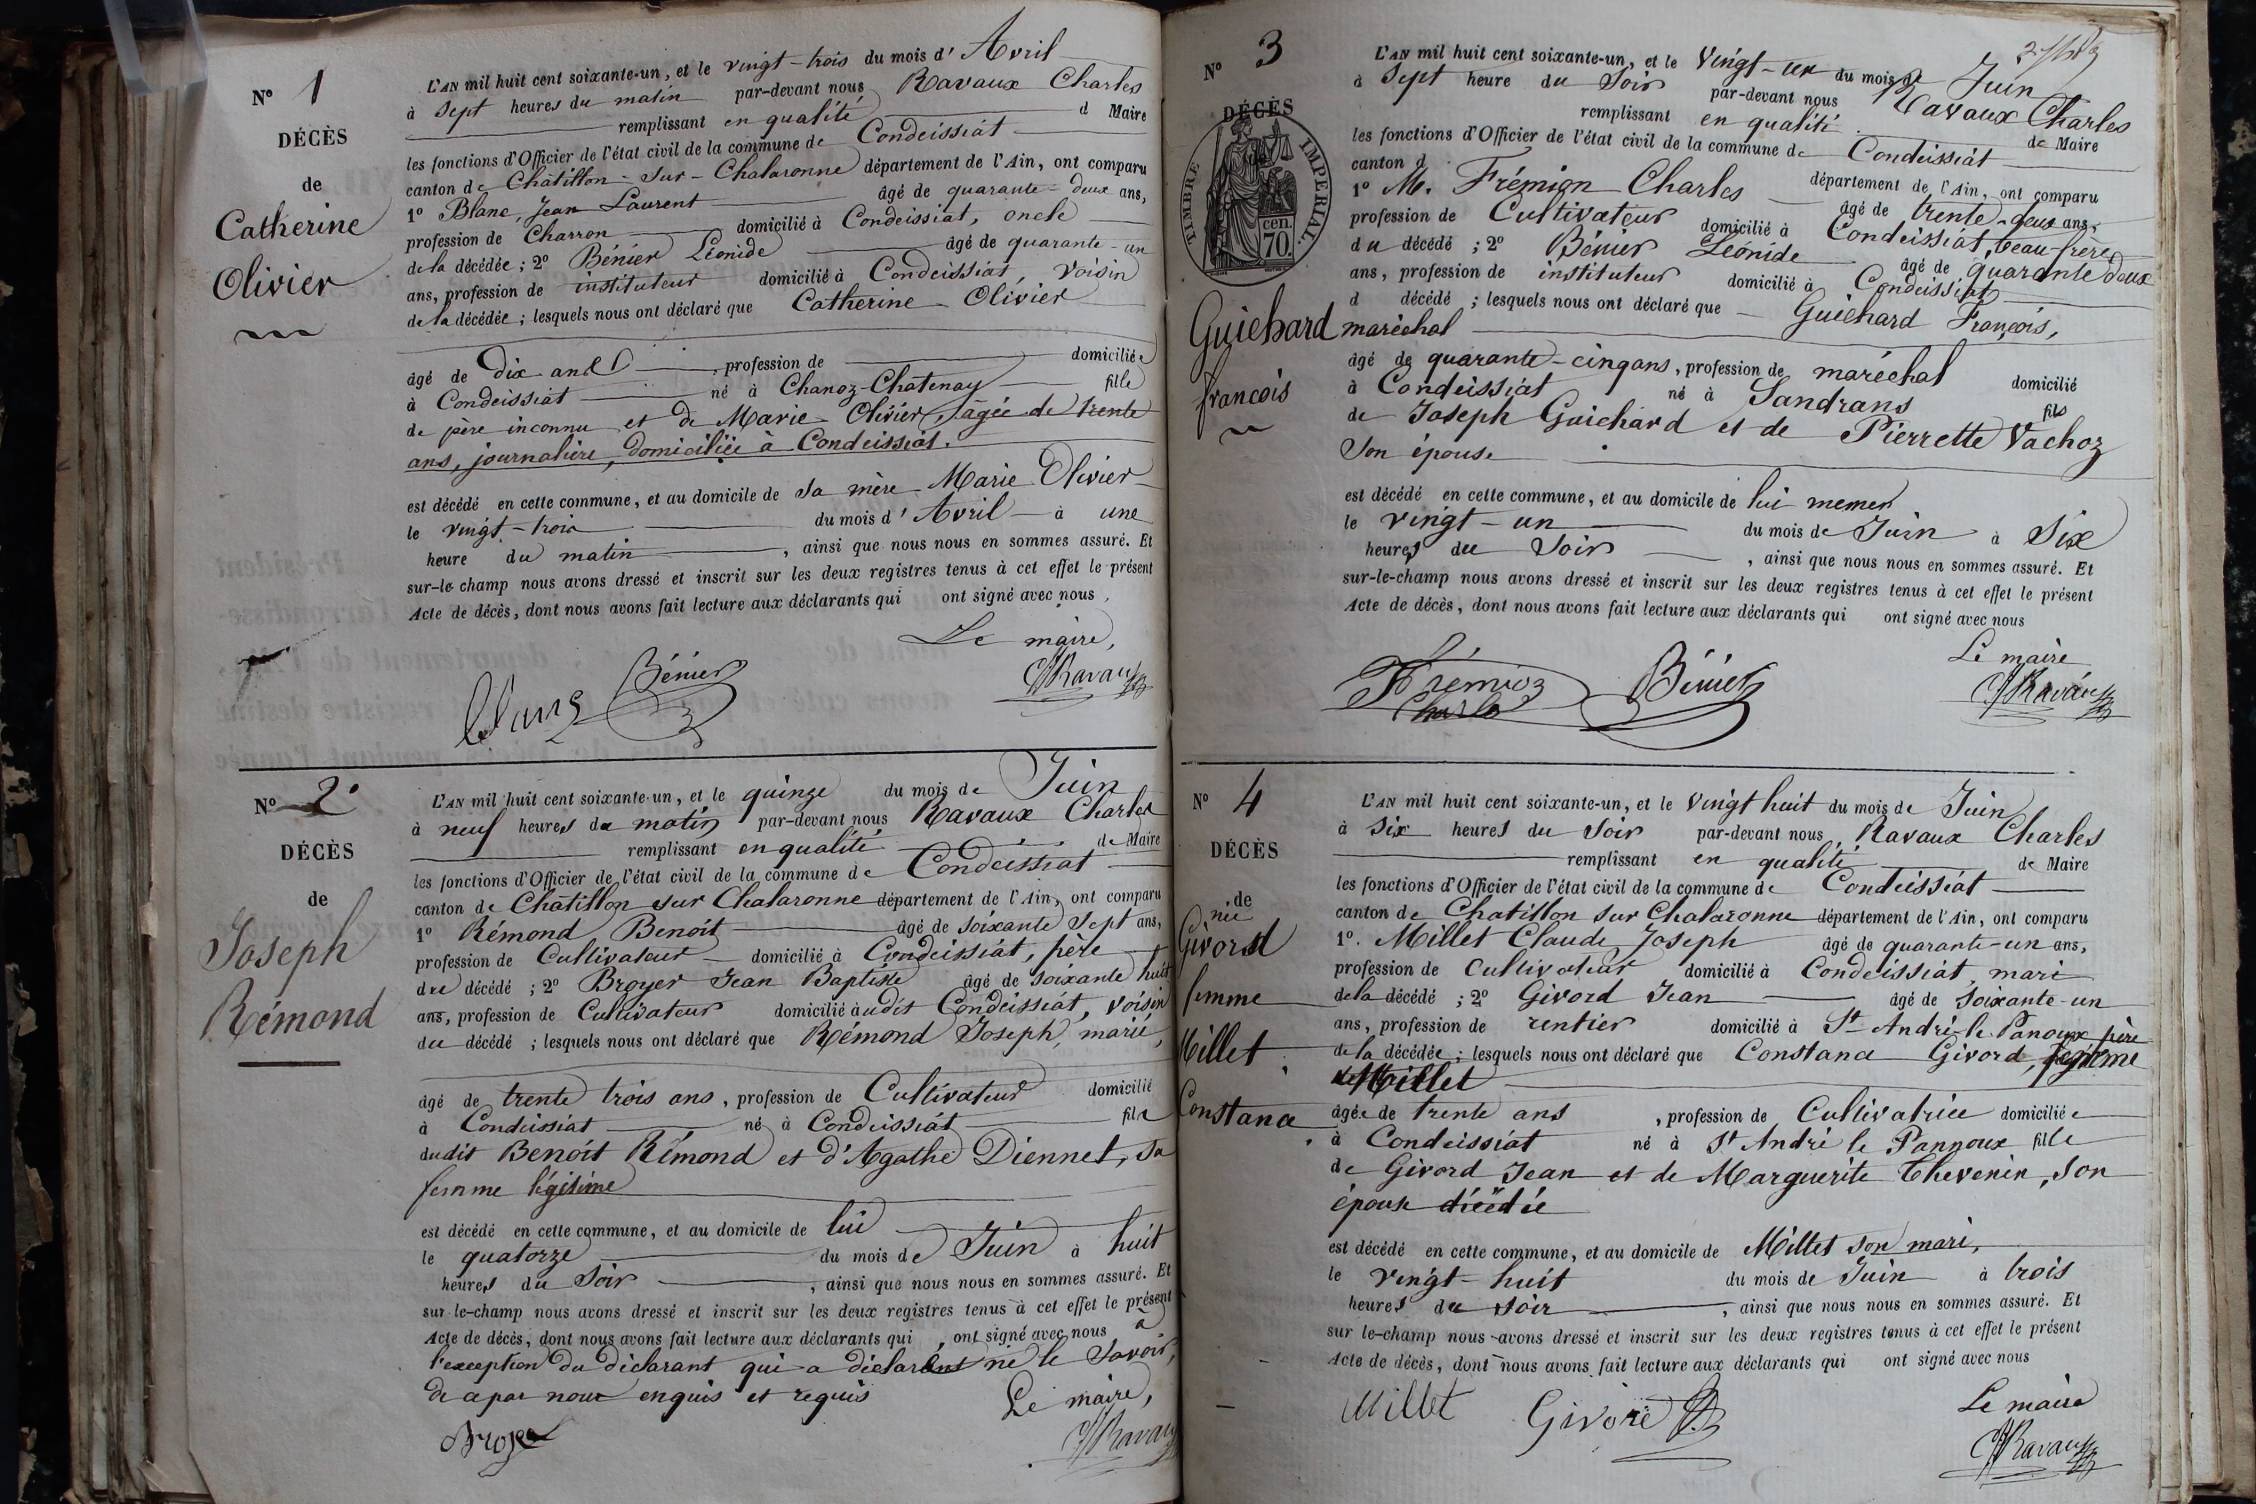 N° 1
DÉCÈS
de
Catherine
Olivier
L'AN mil huit cent soixante-un, et le vingt-trois du mois d'Avril
à sept heures du matin par-devant nous Ravaux Charles
remplissant en qualité d Maire
les fonctions d'Officier de l'état civil de la commune de Condeissiat
canton de Châtillon-sur-Chalaronne département de l'Ain, ont comparu
1° Blanc, Jean Laurent âgé de quarante-deux ans,
profession de Charron domicilié à Condeissiat, oncle
de la décédée ; 2° Bénier Léonide âgé de quarante-un
ans, profession de instituteur domicilié à Condeissiat, voisin
de la décédée ; lesquels nous ont déclaré que Catherine Olivier
âgé de dix ans profession de domiciliée
à Condeissiat né à Chanoz-Chatenay fille
de père inconnu et de Marie Olivier, âgée de trente
ans, journalière, domiciliée à Condeissiat.
est décédé en cette commune, et au domicile de sa mère Marie Olivier
le vingt-trois du mois d'Avril à une
heure du matin, ainsi que nous nous en sommes assuré. Et
sur-le-champ nous avons dressé et inscrit sur les deux registres tenus à cet effet le présent
Acte de décès, dont nous avons fait lecture aux déclarants qui ont signé avec nous.
Le maire,
Blanc Bénier CRavaux
N° 2
DÉCÈS
de
Joseph
Rémond
L'AN mil huit cent soixante-un, et le quinze du mois de Juin
à neuf heures du matin par-devant nous Ravaux Charles
remplissant en qualité de Maire
les fonctions d'Officier de l'état civil de la commune de Condeissiat
canton de Chatillon sur Chalaronne département de l'Ain, ont comparu
1° Rémond Benoit âgé de soixante sept ans,
profession de Cultivateur domicilié à Condeissiat, père
du décédé ; 2° Broyer Jean Baptiste âgé de soixante huit
ans, profession de Cultivateur domicilié audit Condeissiat, voisin
du décédé ; lesquels nous ont déclaré que Rémond Joseph, marié,
âgé de trente trois ans, profession de Cultivateur domicilié
à Condeissiat né à Condeissiat fils
dudit Benoit Rémond et d'Agathe Diennet, sa
femme légitime
est décédé en cette commune, et au domicile de lui
le quatorze du mois de Juin à huit
heures du soir, ainsi que nous nous en sommes assuré. Et
sur-le-champ nous avons dressé et inscrit sur les deux registres tenus à cet effet le présent
Acte de décès, dont nous avons fait lecture aux déclarants qui ont signé avec nous à
l'exception du déclarant qui a déclaré ne le savoir,
de a par nous enquis et requis
Le maire,
Broyer CRavaux
N° 3
DÉCÈS
TIMBRE IMPERIAL.
70. cen.
Guichard
francois
L'AN mil huit cent soixante-un, et le vingt-un du mois de Juin
à Sept heure du Soir par-devant nous Ravaux Charles
remplissant en qualité de Maire
les fonctions d'Officier de l'état civil de la commune de Condeissiat
canton d département de l'Ain, ont comparu
1° M. Frémion Charles âgé de trente-deux ans,
profession de Cultivateur domicilié à Condeissiat, beau-frère
du décédé ; 2° Bénier Léonide âgé de quarante deux
ans, profession de instituteur domicilié à Condeissiat
d décédé ; lesquels nous ont déclaré que Guichard François,
maréchal
âgé de quarante-cinq ans, profession de maréchal domicilié
à Condeissiat né à Sandrans fils
de Joseph Guichard et de Pierrette Vachoz
son épouse
est décédé en cette commune, et au domicile de lui memes
le vingt-un du mois de Juin à Six
heures du Soir, ainsi que nous nous en sommes assuré. Et
sur-le-champ nous avons dressé et inscrit sur les deux registres tenus à cet effet le présent
Acte de décès, dont nous avons fait lecture aux déclarants qui ont signé avec nous
Le maire
Frémion Charles Bénier CRavaux
N° 4
DÉCÈS
de
née
Givord
femme
Millet
Constance
L'AN mil huit cent soixante-un, et le vingt huit du mois de Juin
à six heures du soir par-devant nous, Ravaux Charles
remplissant en qualité de Maire
les fonctions d'Officier de l'état civil de la commune de Condeissiat
canton de Chatillon sur Chalaronne département de l'Ain, ont comparu
1°. Millet Claude Joseph âgé de quarante-un ans,
profession de Cultivateur domicilié à Condeissiat, mari
de la décédée ; 2° Givord Jean âgé de soixante-un
ans, profession de rentier domicilié à St André-le-Panoux père
de la décédée ; lesquels nous ont déclaré que Constance Givord, femme
de Millet
âgée de trente ans, profession de Cultivatrice domiciliée
à Condeissiat né à St André le Pannoux fille
de Givord Jean et de Marguerite Thevenin, son
épouse décédée
est décédé en cette commune, et au domicile de Millet son mari,
le vingt-huit du mois de Juin à trois
heures du soir, ainsi que nous nous en sommes assuré. Et
sur le-champ nous avons dressé et inscrit sur les deux registres tenus à cet effet le présent
Acte de décès, dont nous avons fait lecture aux déclarants qui ont signé avec nous
Le maire
Millet Givord CRavaux